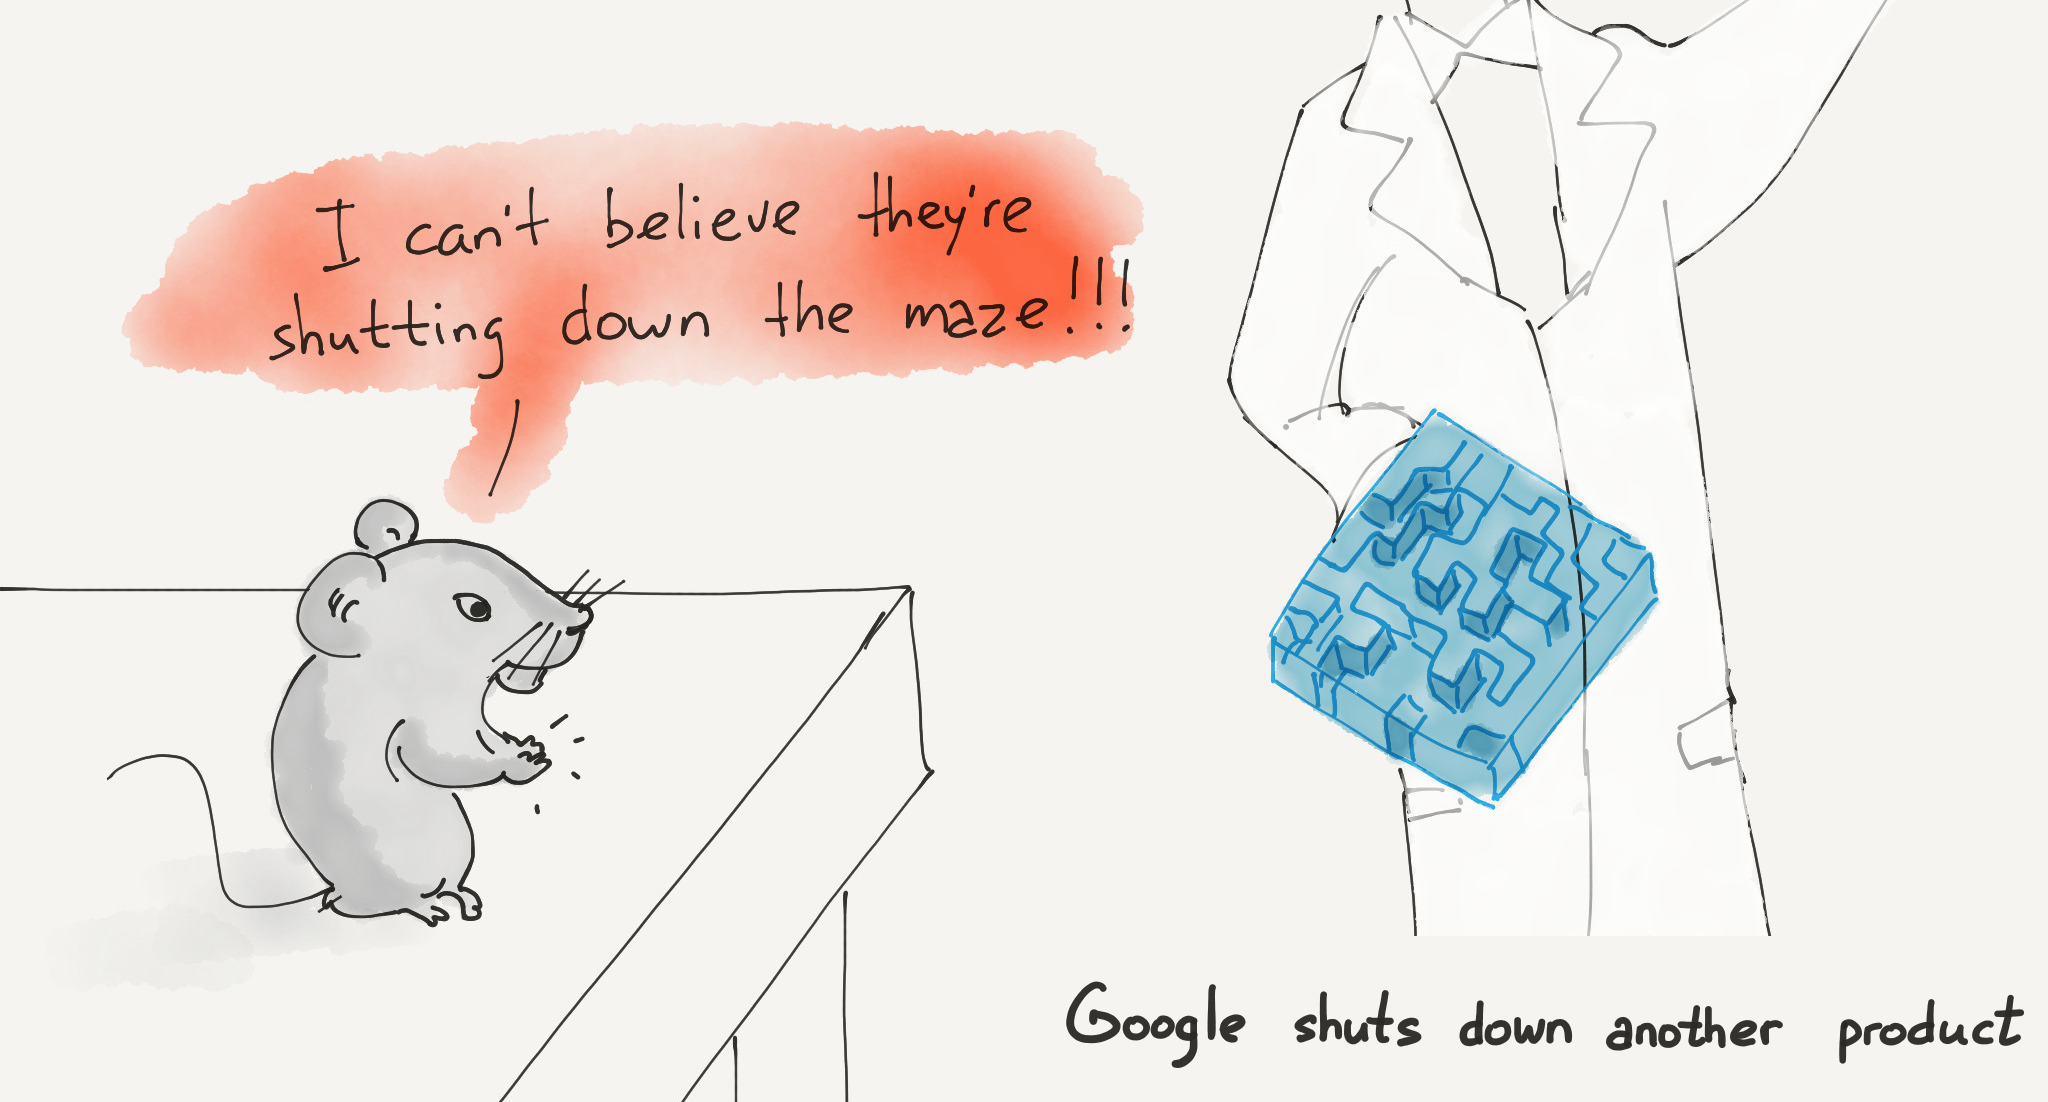 I can't believe they're
shutting down the maze!!!
Google shuts down another product